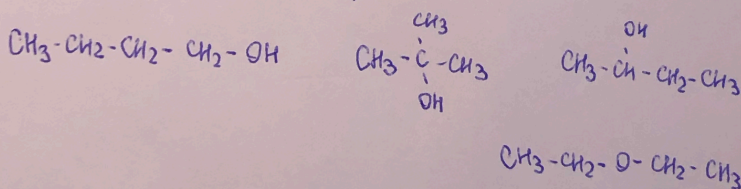 CH3-CH2-CH2-CH2-OH
CH3
CH3-C-CH3
OH
OH
CH3-CH-CH2-CH3
CH3-CH2-O-CH2-CH3